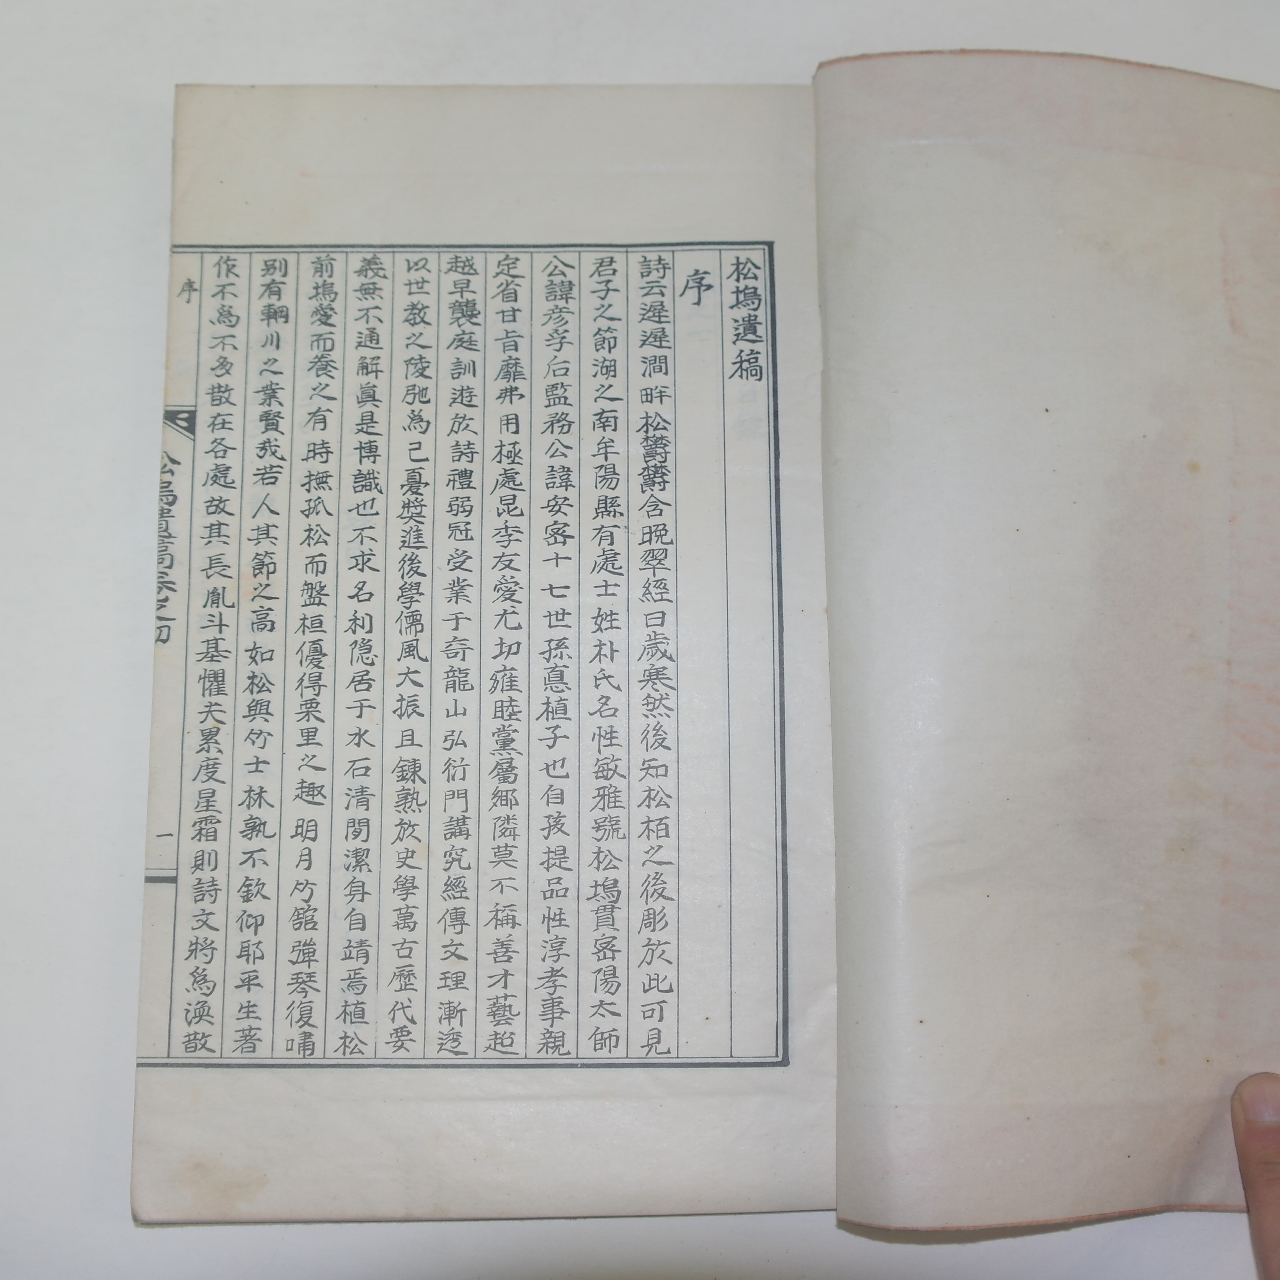 松塢遺稿
序
詩云遲遲澗畔松欎欎含晩翠經曰歲寒然後知松栢之後彫於此可見
君子之節湖之南牟陽縣有處士姓朴氏名性敏雅號松塢貫密陽太師
公諱彦孚后監務公諱安密十七世孫憙植子也自孩提品性淳孝事親
定省甘旨靡弗用極處昆季友愛尤切雍睦黨屬鄉隣莫不稱善才藝超
越早襲庭訓遊於詩禮弱冠受業于奇龍山弘衍門講究經傳文理漸透
以世敎之陵弛爲己憂奬進後學儒風大振且鍊熟於史學萬古歷代要
義無不通解眞是博識也不求名利隐居于水石清閒潔身自靖焉植松
前塢愛而養之有時撫孤松而盤桓優得栗里之趣明月竹舘彈琴復嘯
別有輞川之業賢哉若人其節之高如松與竹士林孰不欽仰耶平生著
作不爲不多散在各處故其長胤斗基懼夫累度星霜則詩文將爲渙散
序
松塢遺稿卷之初
一